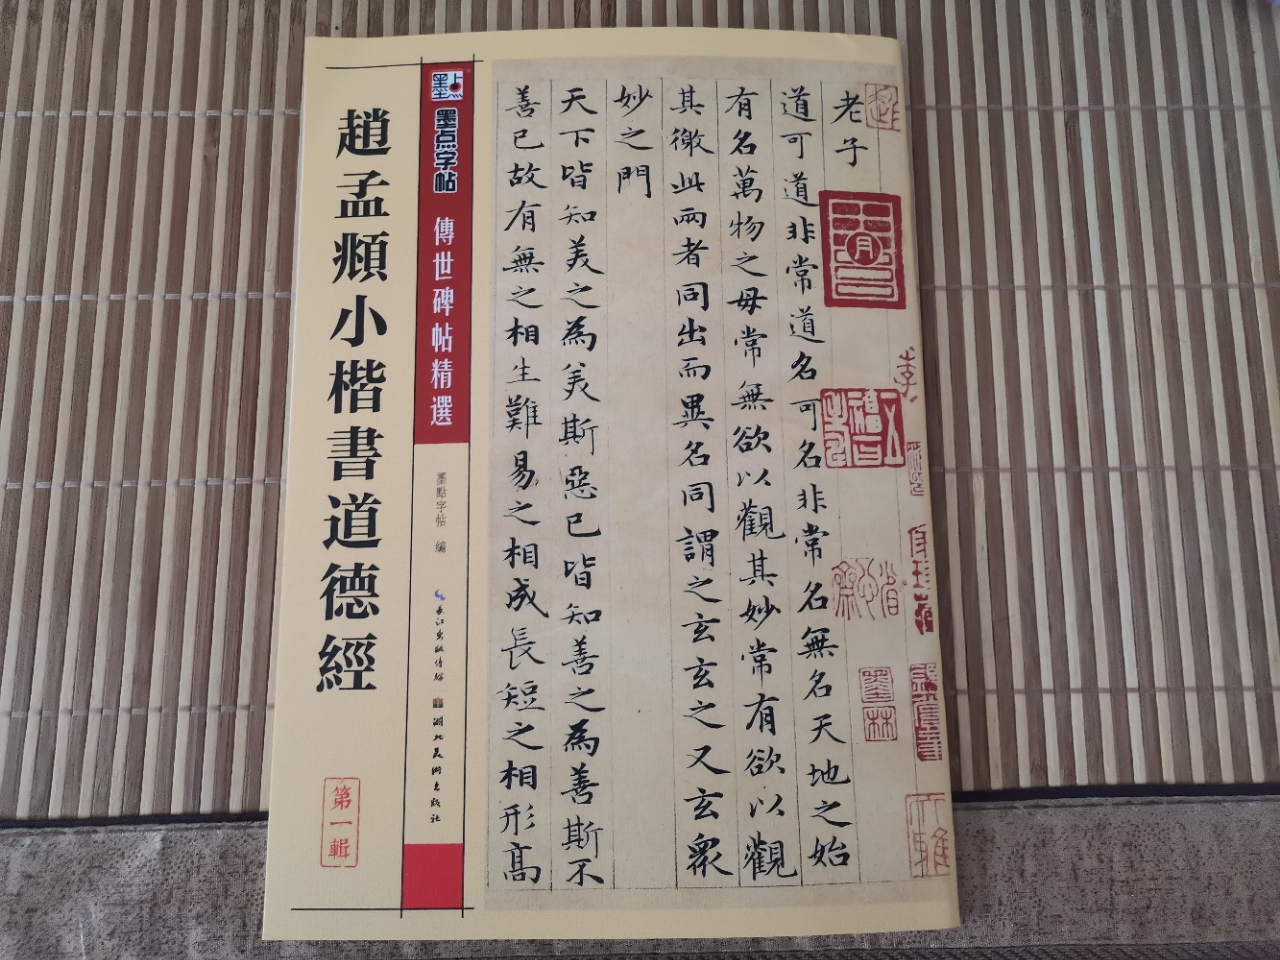 趙孟頫小楷書道德經
第一輯
墨点
墨点字帖
傳世碑帖精選
墨點字帖 編
長江出版傳媒
湖北美術出版社
老子
道可道非常道名可名非常名無名天地之始
有名萬物之母常無欲以觀其妙常有欲以觀
其徼此兩者同出而異名同謂之玄玄之又玄眾
妙之門
天下皆知美之為美斯惡已皆知善之為善斯不
善已故有無之相生難易之相成長短之相形高
墨林